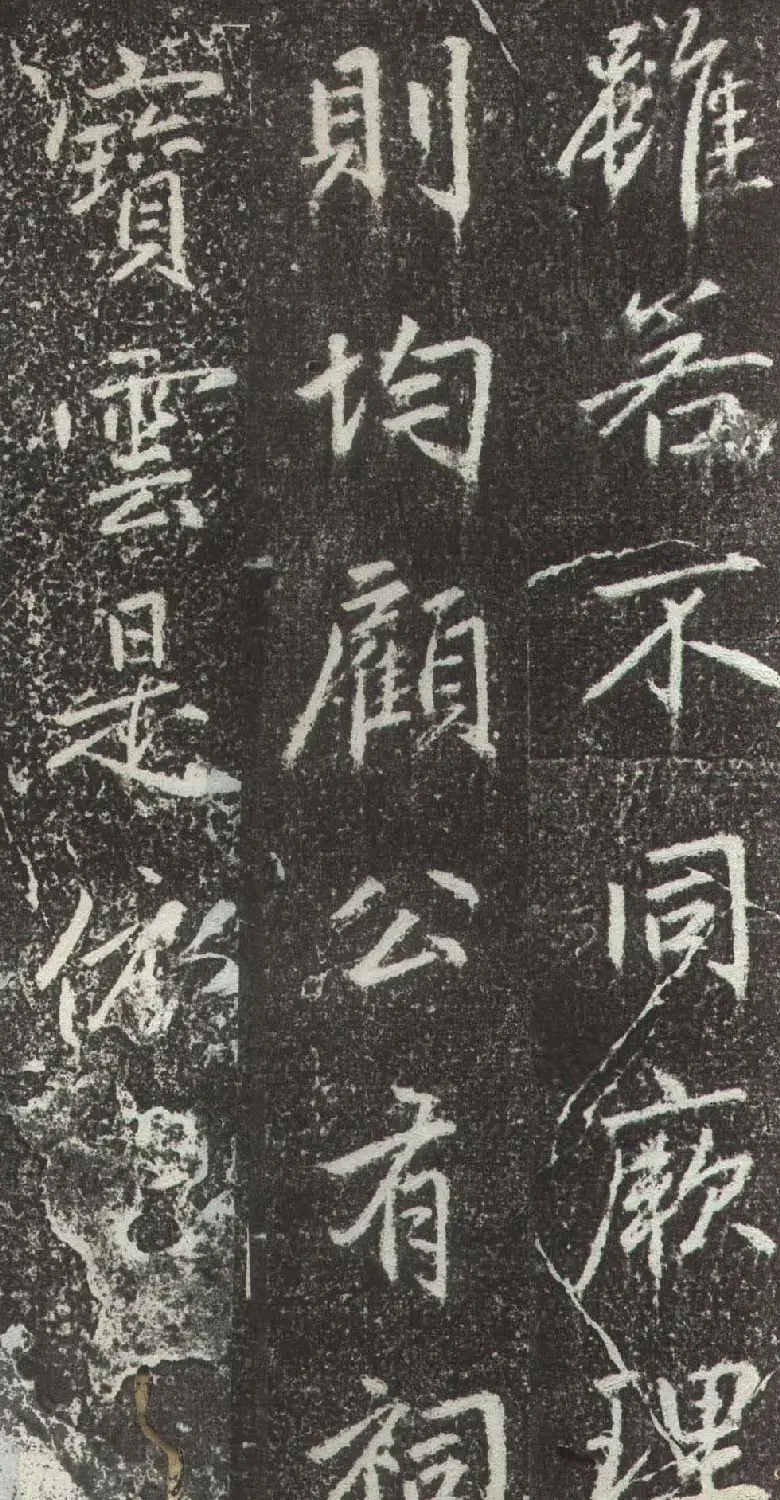 雖若不同厥理
則均顧公有祠
寶雲是依